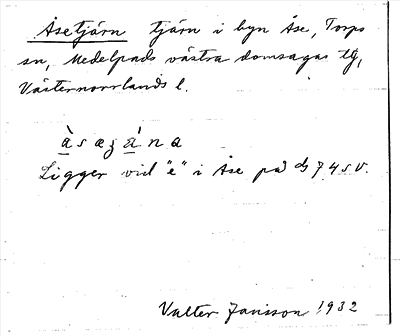 Åsetjärn tjärn i byn Åse, Torps
sn, Medelpads västra domsagas tg,
Västernorrlands l.
Ligger vid "e" i Åse på 74 s v.
Valter Jansson 1932